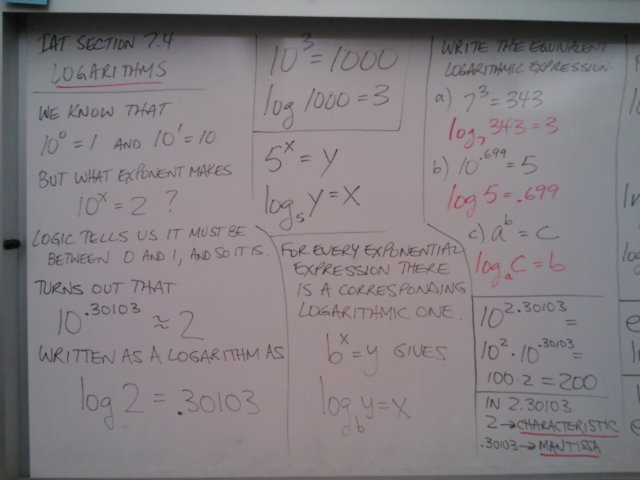 IAT SECTION 7.4
LOGARITHMS
WE KNOW THAT
10⁰ = 1 AND 10¹ = 10
BUT WHAT EXPONENT MAKES
10ˣ = 2 ?
LOGIC TELLS US IT MUST BE
BETWEEN 0 AND 1, AND SO IT IS.
TURNS OUT THAT
10^.30103 ≈ 2
WRITTEN AS A LOGARITHM AS
log 2 = .30103
10³ = 1000
log 1000 = 3
5ˣ = y
log₅ y = x
FOR EVERY EXPONENTIAL
EXPRESSION THERE
IS A CORRESPONDING
LOGARITHMIC ONE.
bˣ = y GIVES
log_b y = x
WRITE THE EQUIVALENT
LOGARITHMIC EXPRESSION.
a) 7³ = 343
log₇ 343 = 3
b) 10^.699 = 5
log 5 = .699
c) aᵇ = c
logₐ c = b
10^2.30103 =
10² · 10^.30103 =
100 · 2 = 200
IN 2.30103
2 → CHARACTERISTIC
.30103 → MANTISSA